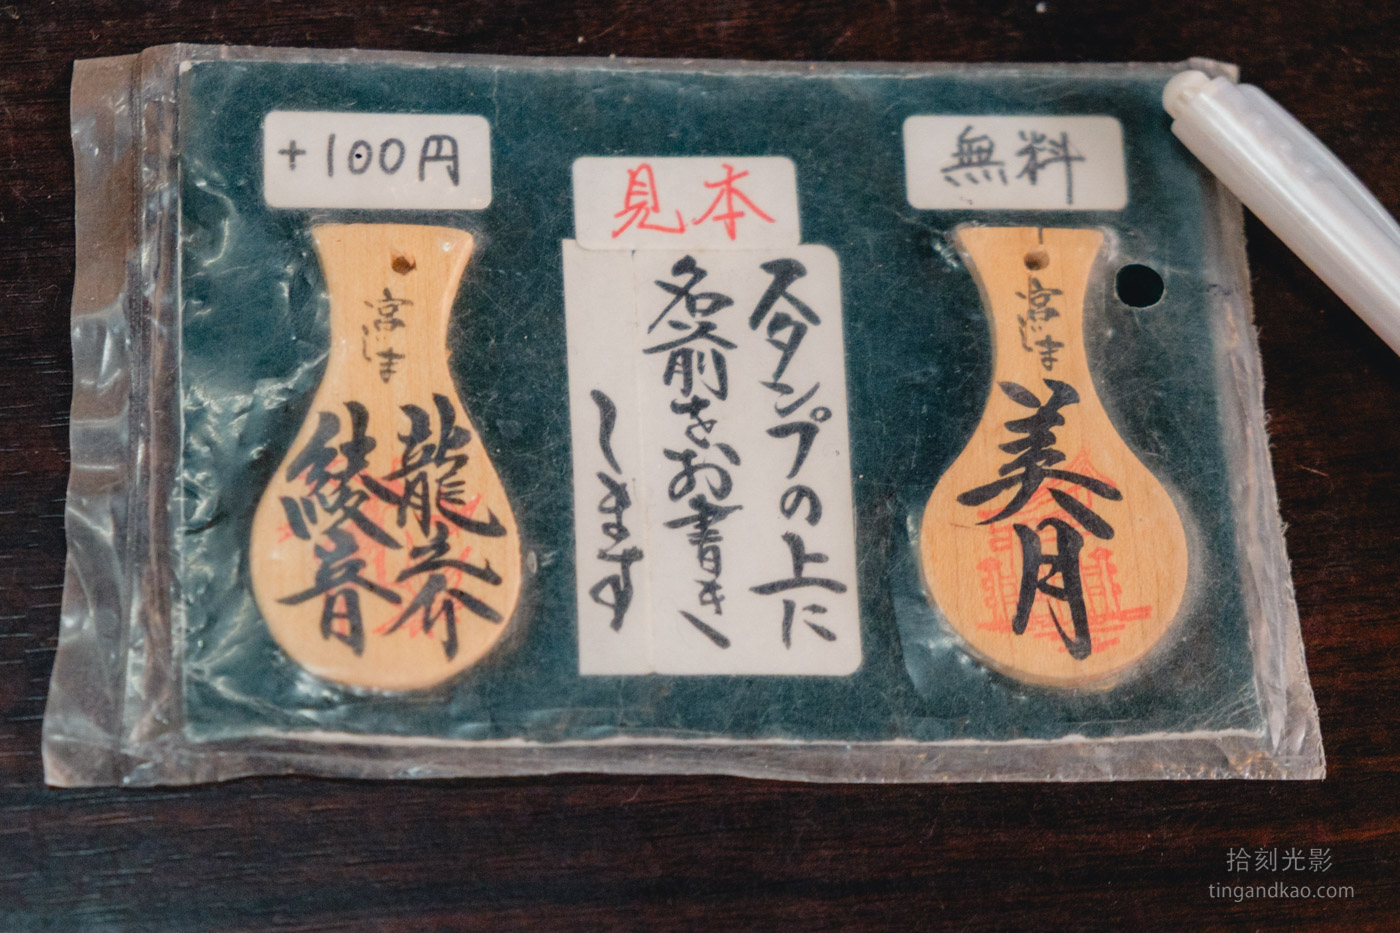 +100円
見本
無料
スタンプの上に
名前をお書き
します
宮じま
龍之介
綾音
宮じま
美月
拾刻光影
tingandkao.com